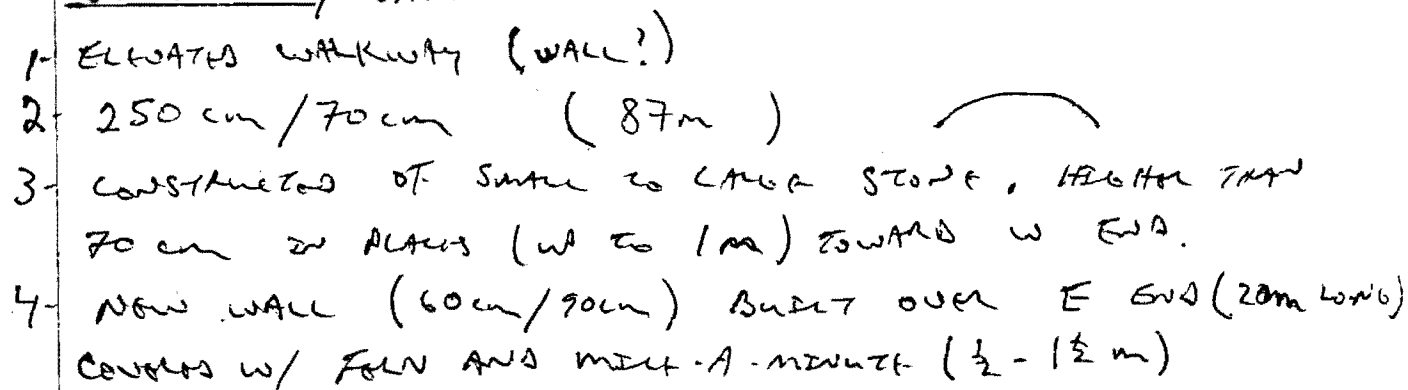 1- ELEVATED WALKWAY (WALL?)
2- 250 cm/70 cm (87m)
3- CONSTRUCTED OF SMALL TO LARGE STONE, HIGHER THAN
70 cm IN PLACES (UP TO 1m) TOWARD W END.
4- NEW WALL (60cm/90cm) BUILT OVER E END (20m LONG)
COVERED W/ FERN AND MILE-A-MINUTE (½ - 1½ m)